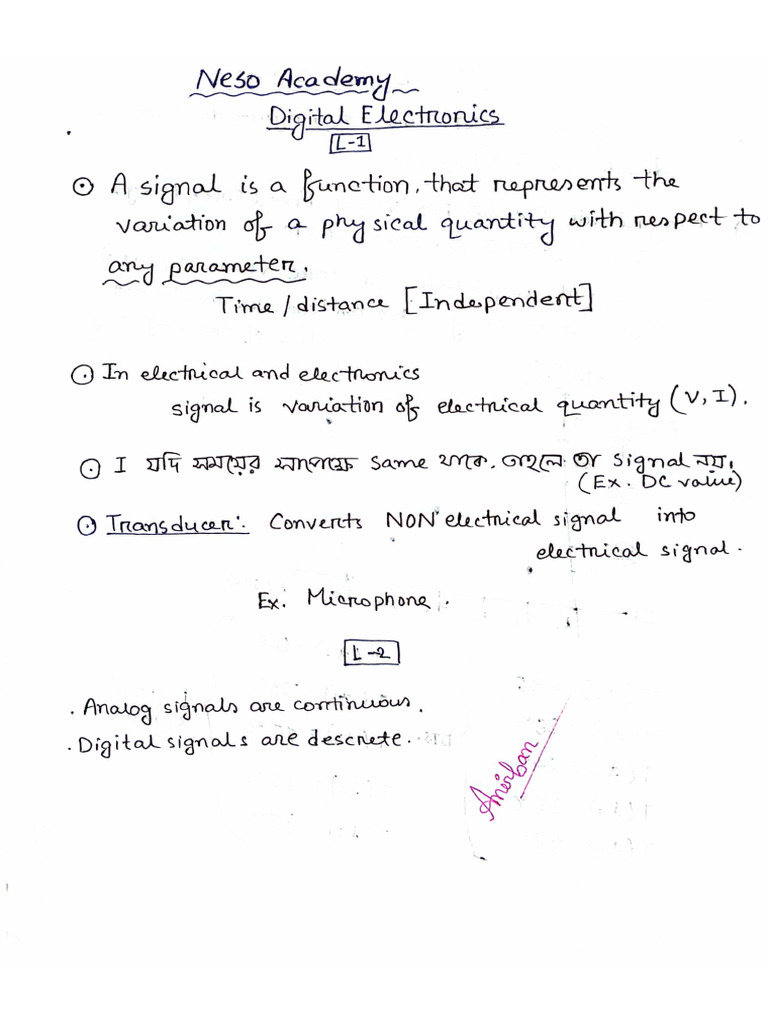 Neso Academy
Digital Electronics
L-1
⊙ A signal is a function, that represents the
variation of a physical quantity with respect to
any parameter.
Time / distance [Independent]
⊙ In electrical and electronics
signal is variation of electrical quantity (V, I).
⊙ I যদি সময়ের সাপেক্ষে same থাকে, তাহলে তা signal নয়।
(Ex. DC value)
⊙ Transducer: Converts NON electrical signal into
electrical signal.
Ex. Microphone.
L-2
. Analog signals are continuous.
. Digital signals are descrete.
Anirban